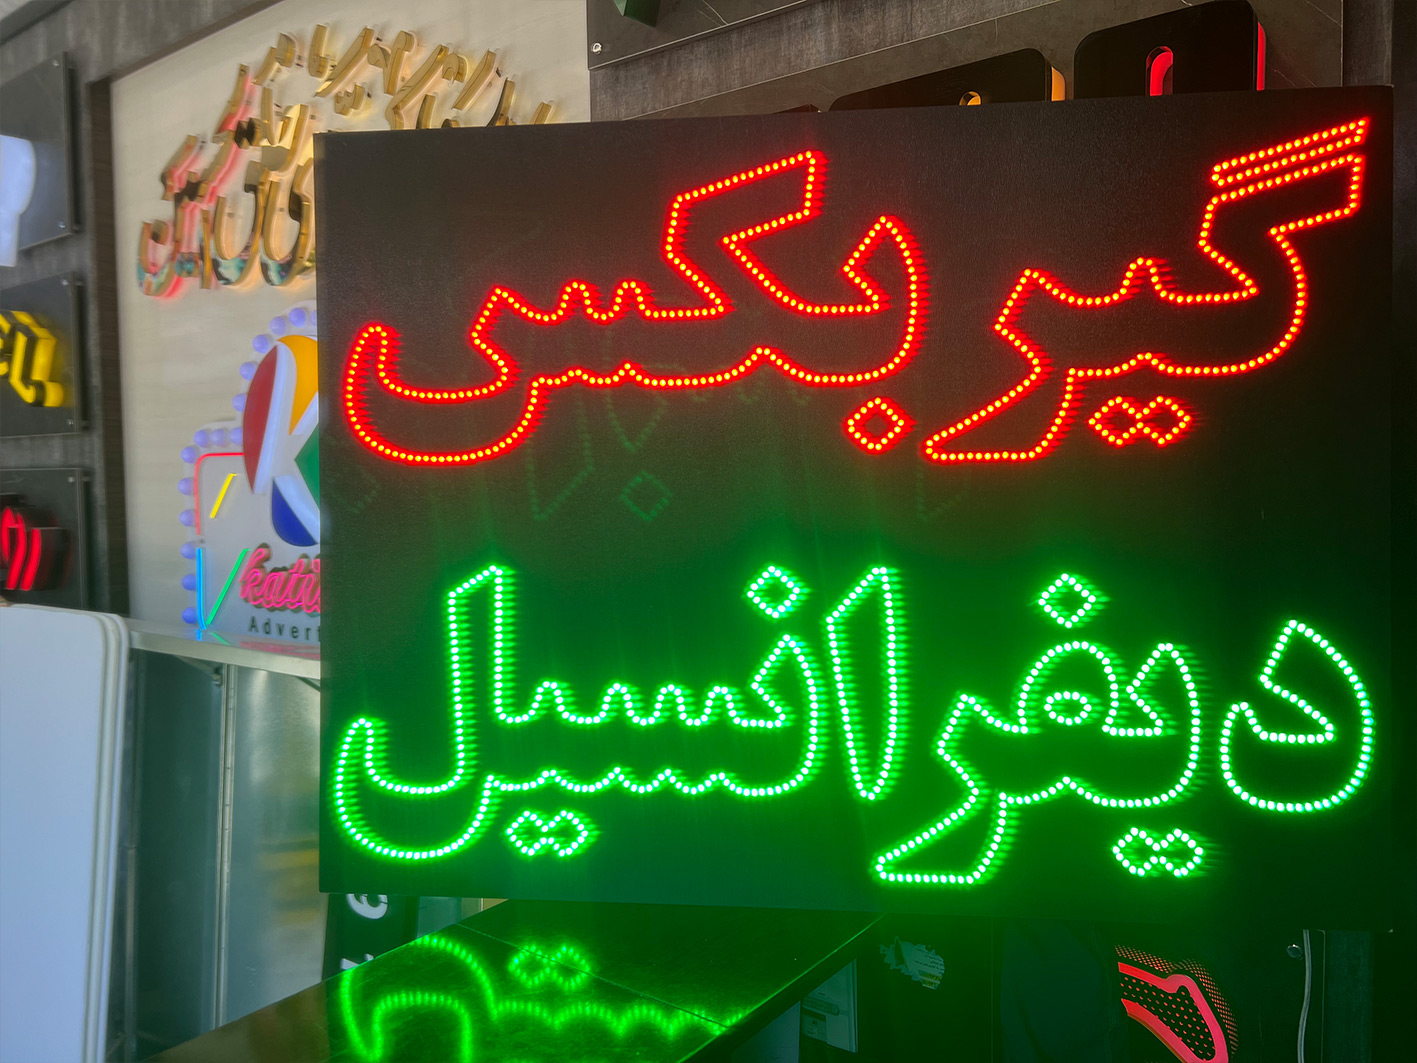 گیربکس
دیفرانسیل
K
kati
Advert